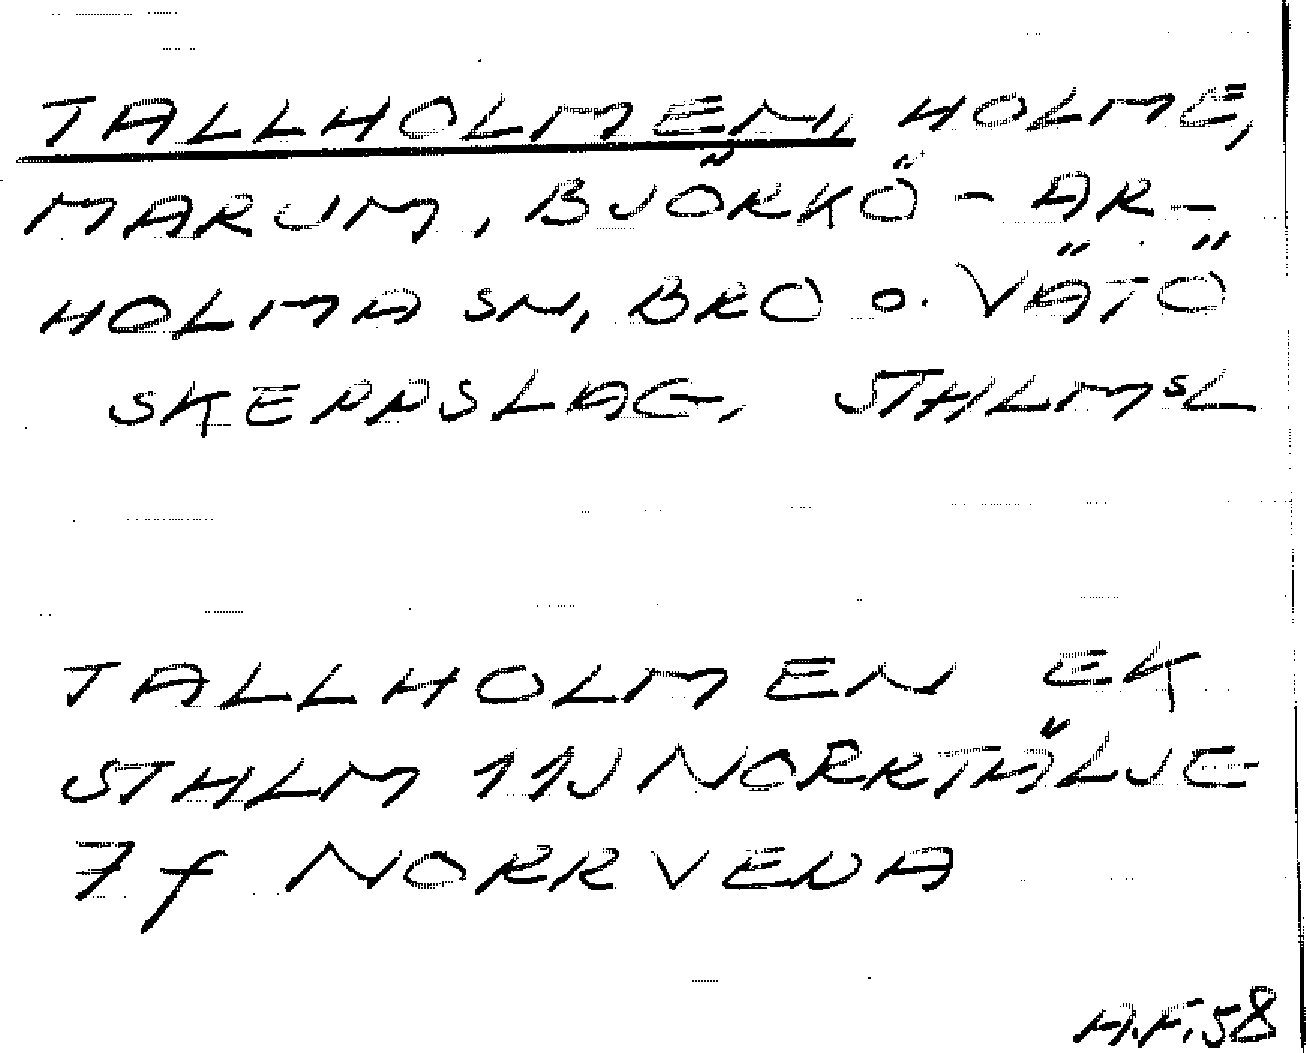 TALLHOLMEN, HOLME,
MARUM, BJÖRKÖ-AR-
HOLMA SN, BRO o. VÄTÖ
SKEPPSLAG, STHLMSL
TALLHOLMEN EK
STHLM 11J NORRTÄLJE
7f NORRVEDA
A.F. 58